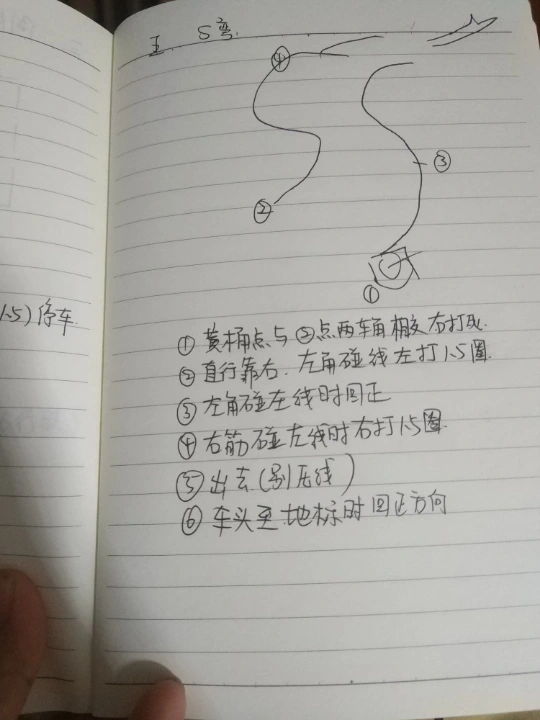 五. S弯
④
③
②
①
1.5) 停车
① 黄桶点与②点两车角相交右打死.
② 直行靠右. 左角碰线左打1.5圈.
③ 左角碰左线时回正
④ 右筋碰左线时右打1.5圈
⑤ 出去(别压线)
⑥ 车头至地标时回正方向